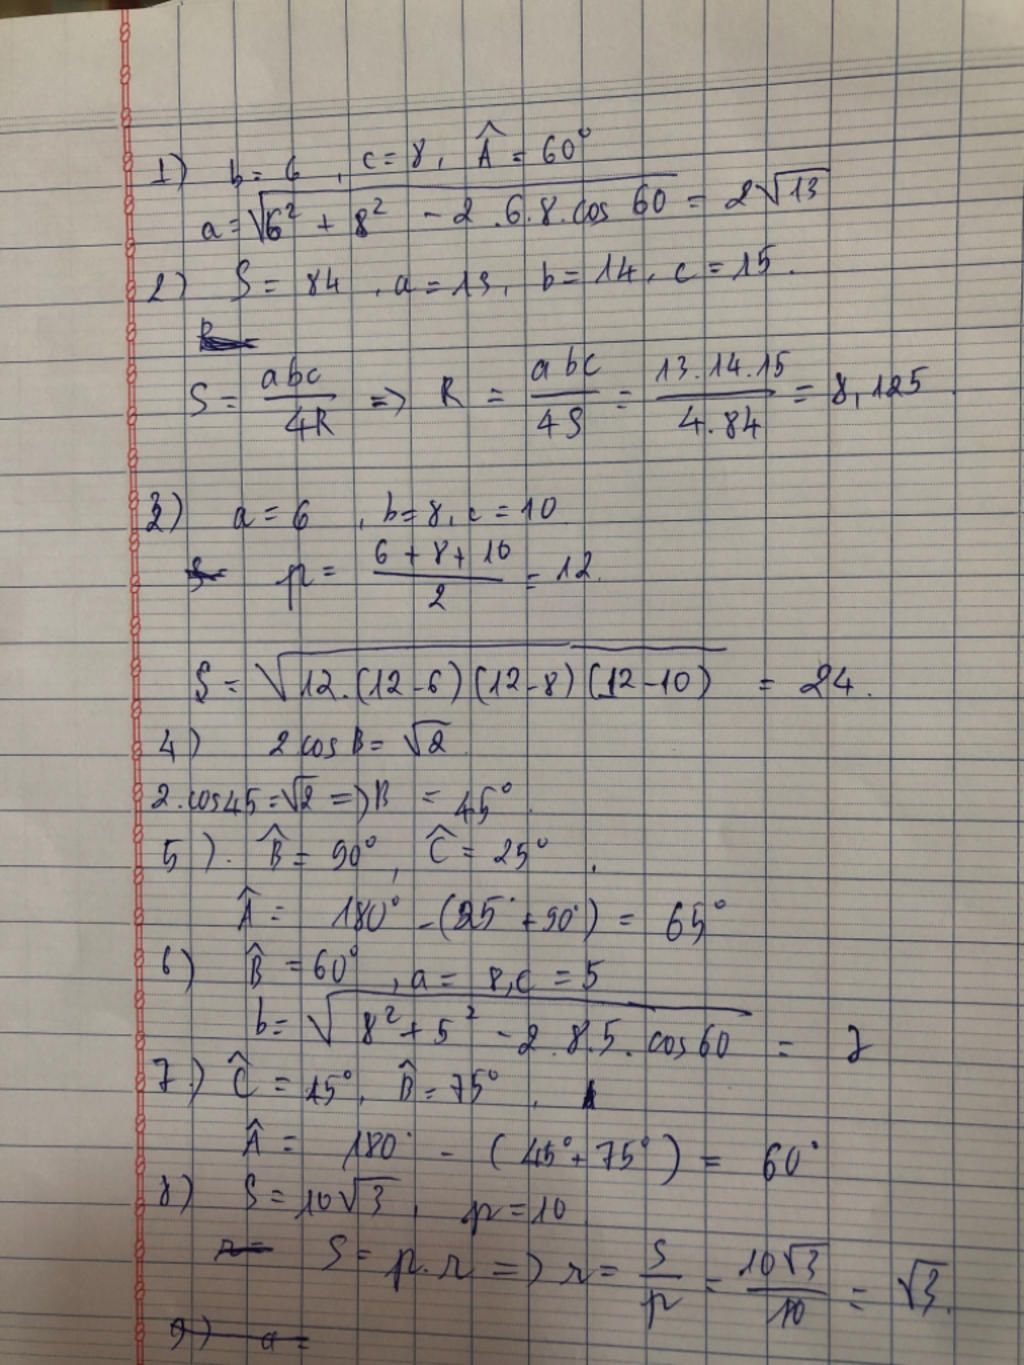 1) b = 6, c = 8, Â = 60°
a = √(6² + 8² - 2.6.8.cos 60) = 2√13
2) S = 84, a = 13, b = 14, c = 15.
S = abc/4R => R = abc/4S = 13.14.15/4.84 = 8,125
3) a = 6, b = 8, c = 10
p = (6 + 8 + 10)/2 = 12.
S = √(12.(12-6)(12-8)(12-10)) = 24.
4) 2cosB = √2
2.cos45 = √2 => B = 45°.
5). B̂ = 90°, Ĉ = 25°.
Â = 180° - (25° + 90°) = 65°
6) B̂ = 60°, a = 8, c = 5
b = √(8² + 5² - 2.8.5.cos60) = 7
7.) Ĉ = 45°, B̂ = 75°,
Â = 180° - (45° + 75°) = 60°
8) S = 10√3, p = 10
S = p.r => r = S/p = 10√3/10 = √3.
9) a =